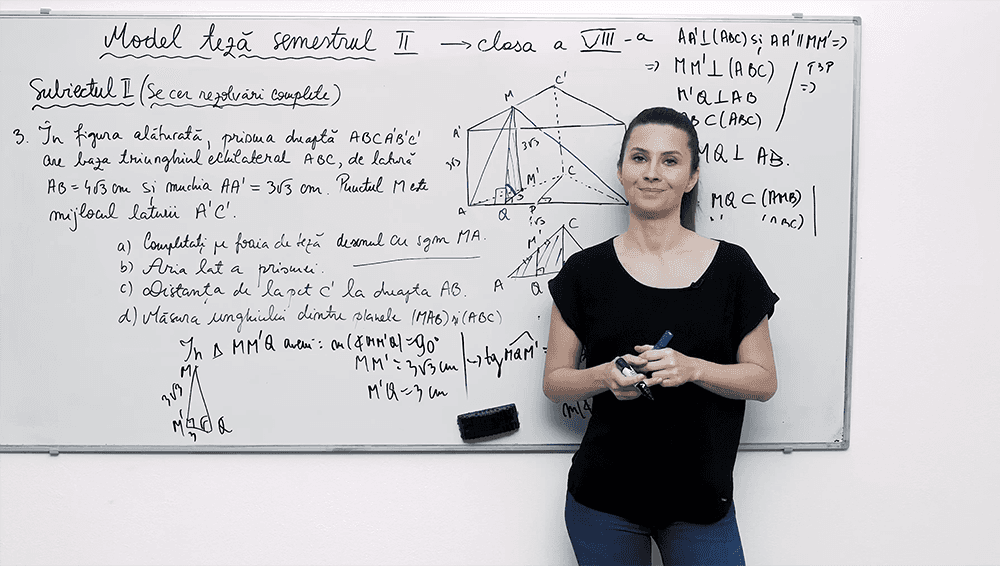 Model teză semestrul II → clasa a VIII-a
Subiectul II (Se cer rezolvări complete)
3. În figura alăturată, prisma dreaptă ABCA'B'C'
are baza triunghiul echilateral ABC, de latură
AB = 4√3 cm și muchia AA' = 3√3 cm. Punctul M este
mijlocul laturii A'C'.
a) Completați pe foaia de teză desenul cu sgm MA.
b) Aria lat a prismei.
c) Distanța de la pct C' la dreapta AB.
d) Măsura unghiului dintre planele (MAB) și (ABC)
În Δ MM'Q avem: m(∢MM'Q) = 90°
MM' = 3√3 cm
M'Q = 3 cm
→ tg MQM' =
M
3√3
M'
3
Q
C'
M
A'
3√3
3√3
M'
C
A
Q
P
C
M'
A
Q
AA' ⊥ (ABC) și AA' ∥ MM' =>
=> MM' ⊥ (ABC)
M'Q ⊥ AB
AB ⊂ (ABC)
T3P
=>
MQ ⊥ AB.
MQ ⊂ (AMB)